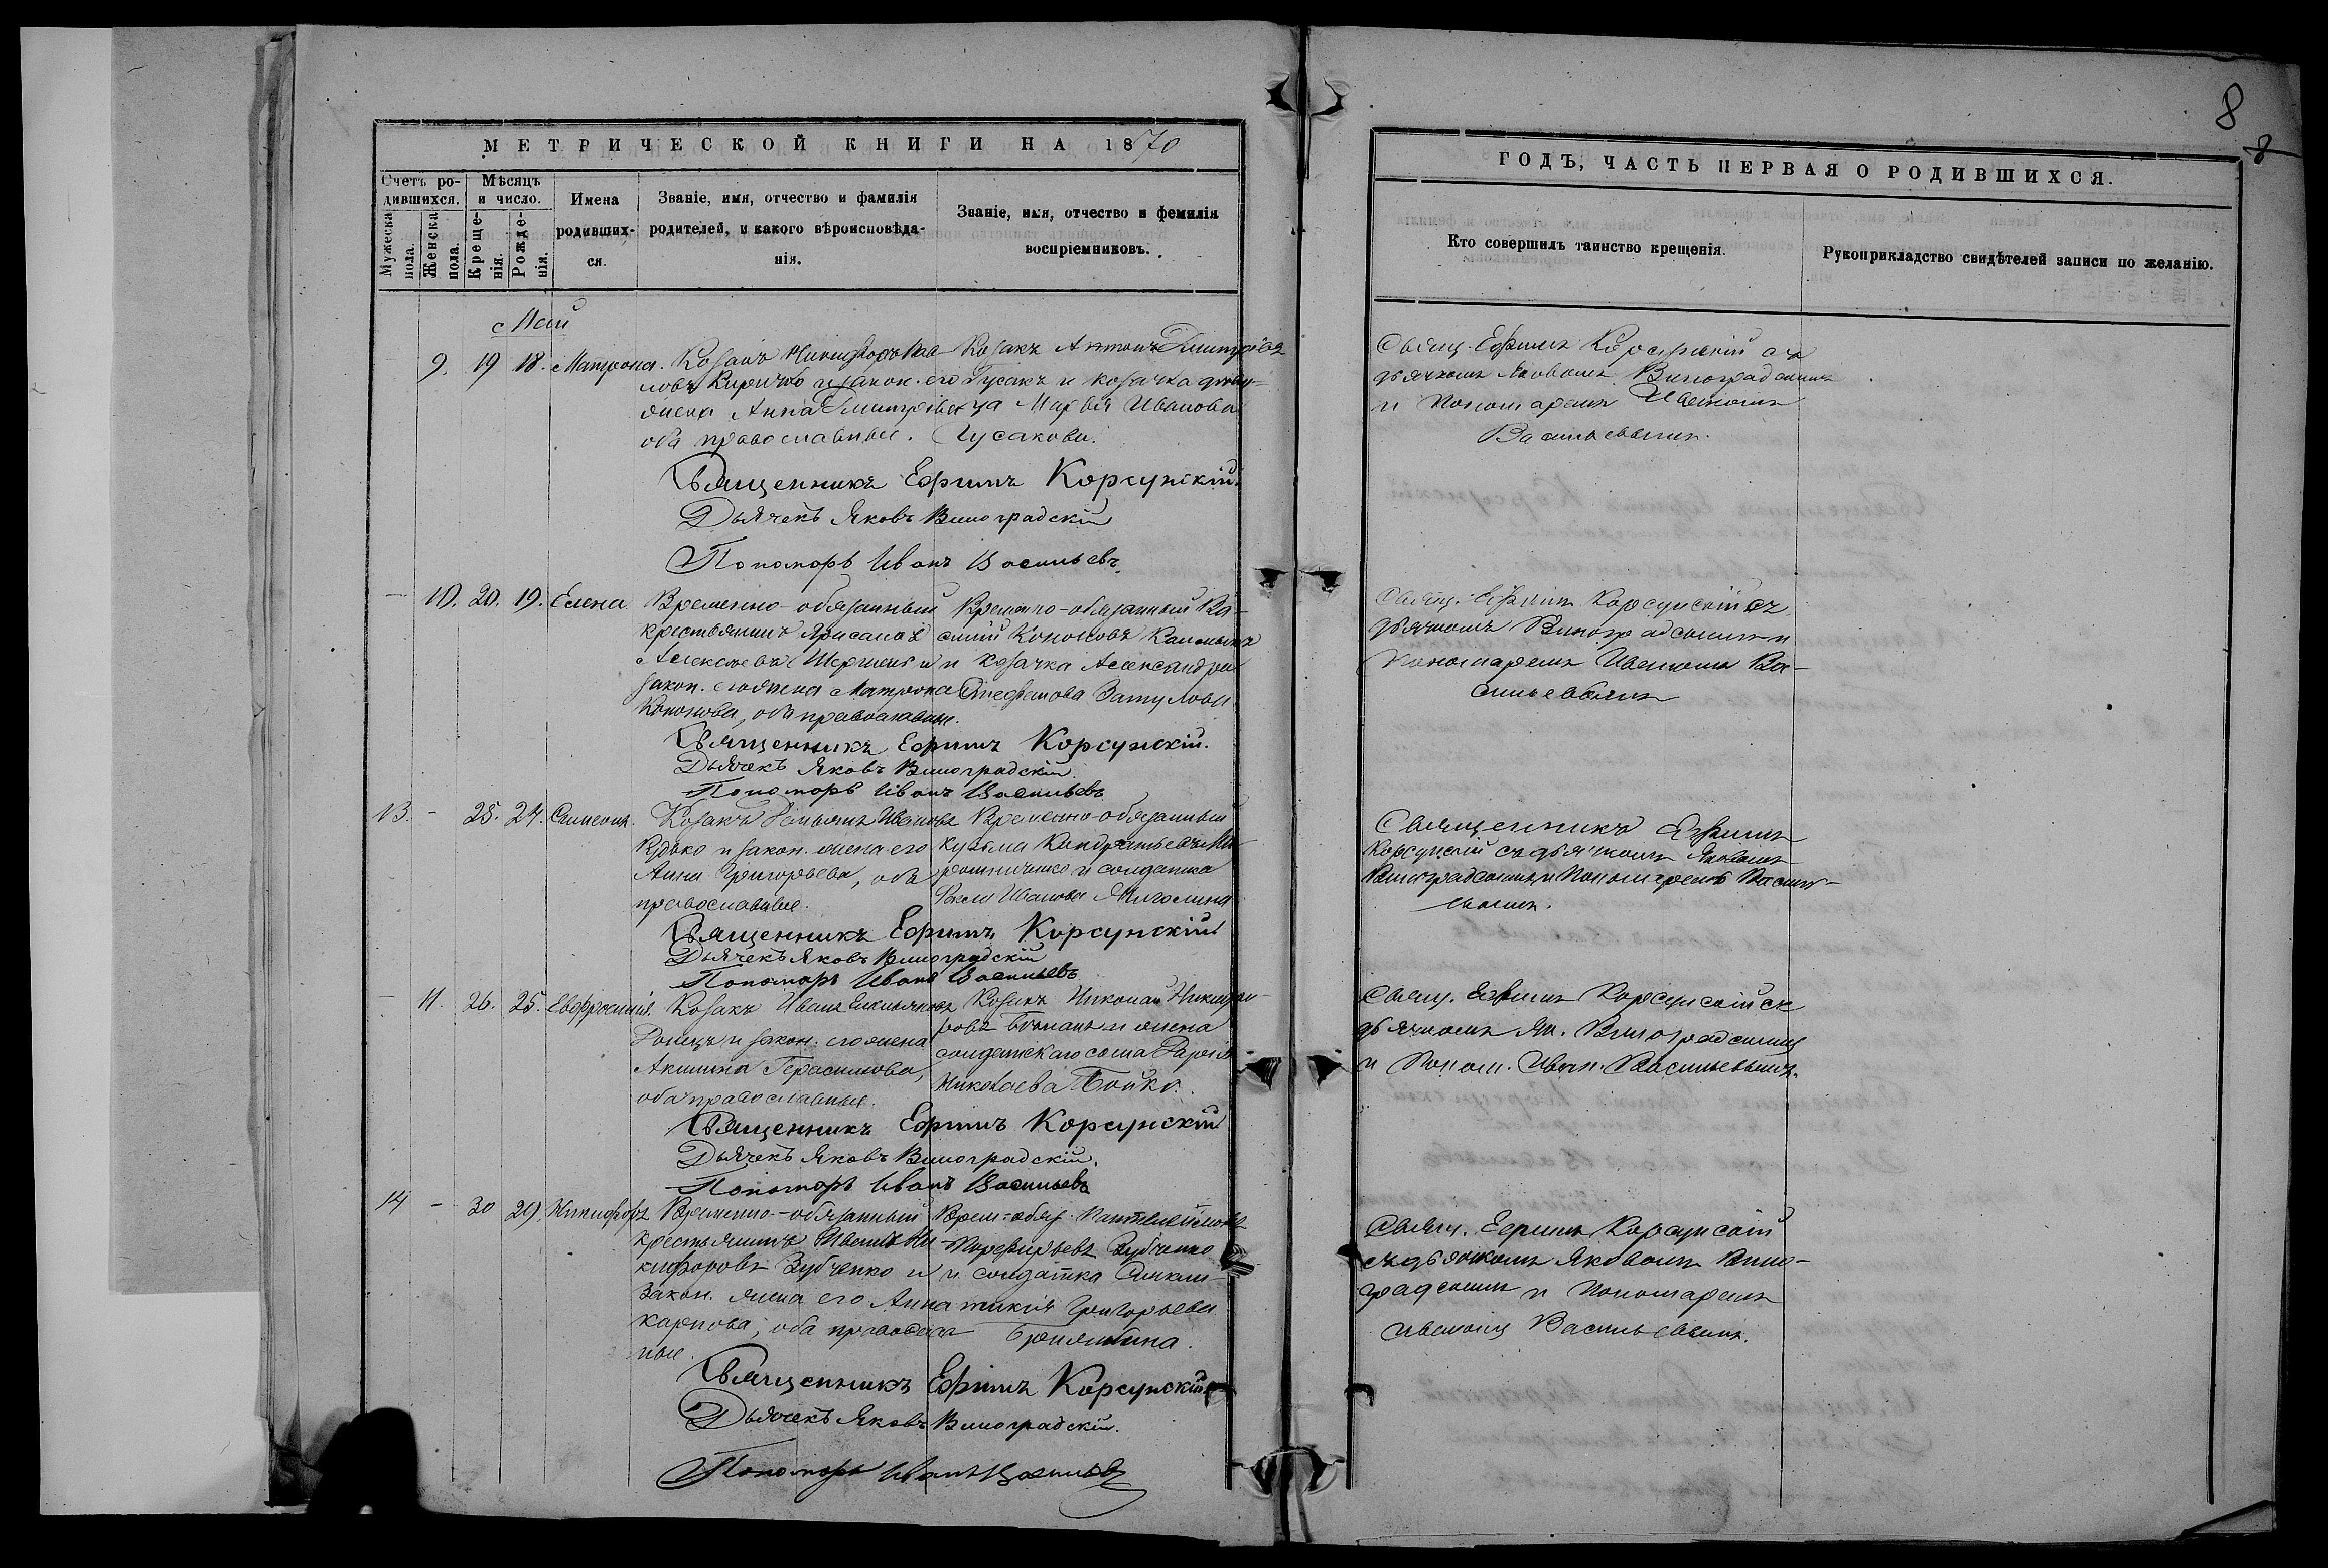 8
8
МЕТРИЧЕСКОЙ КНИГИ НА 1870
ГОДЪ, ЧАСТЬ ПЕРВАЯ О РОДИВШИХСЯ.
Счетъ ро-
дившихся.
Мужеска
пола.
Женска
пола.
Мѣсяцъ
и число.
Креще-
нія.
Рожде-
нія.
Имена
родивших-
ся.
Званіе, имя, отчество и фамилія
родителей, и какого вѣроисповѣда-
нія.
Званіе, имя, отчество и фемилія
воспріемниковъ.
Кто совершилъ таинство крещенія.
Рукоприкладство свидѣтелей записи по желанію.
Май
9. 19 18. Матрона.
Козакъ Никифоръ Пав
ловъ и закон. его
жена Анна Дмитріева
оба православные.
Козакъ Антонъ Дмитріевъ
Гусакъ и козачка
Марѳа Иванова
Гусакова.
Свящ. Ефимъ Корсунскій съ
дьячкомъ Яковомъ Виноградскимъ
и Пономаремъ Иваномъ
Васильевымъ.
Священникъ Ефимъ Корсунскій.
Дьячекъ Яковъ Виноградскій
Пономарь Иванъ Васильевъ.
– 10. 20. 19. Елена
Временно-обязанный
крестьянинъ
Алексѣевъ и
закон. его жена Матрона
Кононова, оба православные.
Временно-обязанный Ва-
силій Кононовъ
и козачка Александра
Стефанова
Свящ. Ефимъ Корсунскій съ
дьячкомъ Виноградскимъ и
Пономаремъ Иваномъ Ва-
сильевымъ
Священникъ Ефимъ Корсунскій.
Дьячекъ Яковъ Виноградскій.
Пономарь Иванъ Васильевъ
13. – 25. 24. Симеонъ.
Козакъ Демьянъ Ивановъ
и закон. жена его
Анна Григорьева, оба
православные.
Временно-обязанный
Кузьма Кондратьевъ
и солдатка
Иванова
Священникъ Ефимъ
Корсунскій съ дьячкомъ Яковомъ
Виноградскимъ и Пономаремъ Василь-
евымъ.
Священникъ Ефимъ Корсунскій
Дьячекъ Яковъ Виноградскій
Пономарь Иванъ Васильевъ
– 11. 26. 25. Евфросинія.
Козакъ Иванъ Емельяновъ
и закон. его жена
Акилина Герасимова,
оба православные.
Козакъ Николай Никифо-
ровъ и жена
солдатскаго сына Дарія
Николаева Бойко.
Свящ. Ефимъ Корсунскій съ
дьячкомъ Як. Виноградскимъ
и Поном. Иван. Васильевымъ.
Священникъ Ефимъ Корсунскій
Дьячекъ Яковъ Виноградскій.
Пономарь Иванъ Васильевъ
14 – 30 29. Никифоръ
Временно-обязанный
крестьянинъ Иванъ Ни-
кифоровъ Зубченко и
закон. жена его Анна
Карпова, оба православ
ные.
Врем-обяз. Пантелеймонъ
Порфирьевъ Зубченко
и солдатка
Григорьева
Свящ. Ефимъ Корсунскій
съ дьячкомъ Яковомъ Вино-
градскимъ и Пономаремъ
Иваномъ Васильевымъ.
Священникъ Ефимъ Корсунскій
Дьячекъ Яковъ Виноградскій.
Пономарь Иванъ Васильевъ